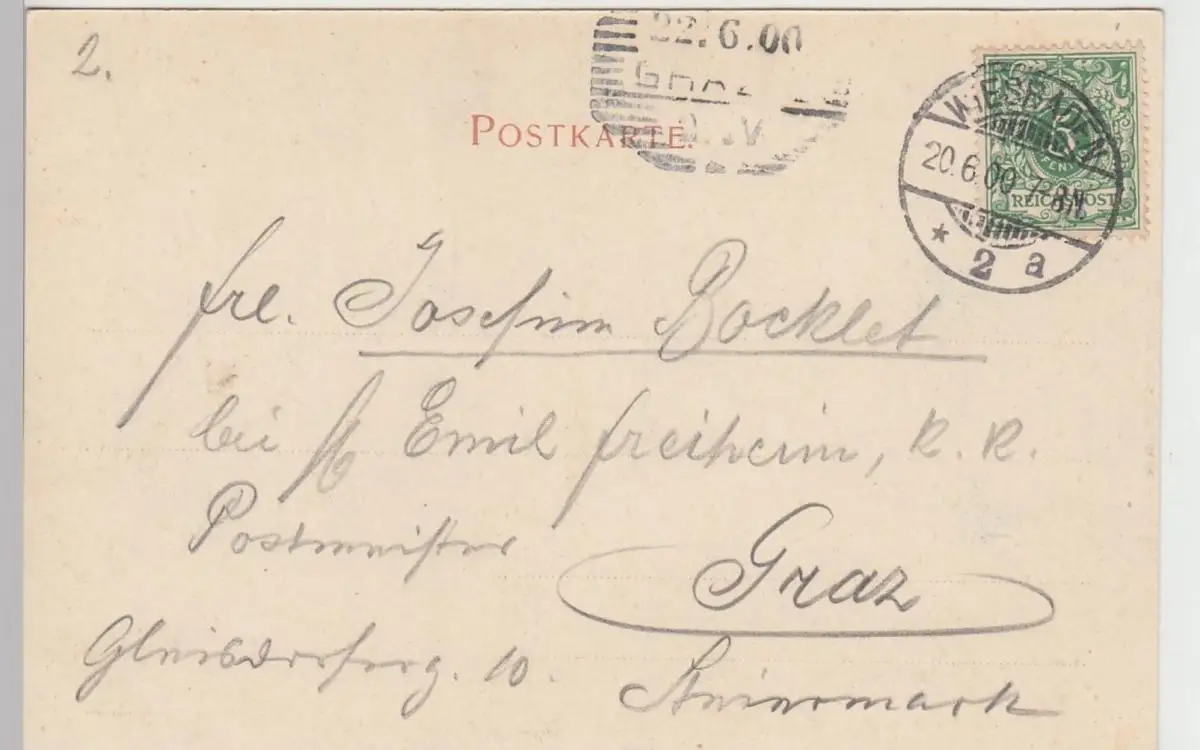 2.
22.6.00
GRAZ
POSTKARTE.
WIESBADEN
20.6.00 7-8N
* 2 a
5
REICHSPOST
Frl. Josefine Bocklet
bei H Emil Freiheim, k. k.
Postmeister
Graz
Gleisdorferg. 10.
Steiermark